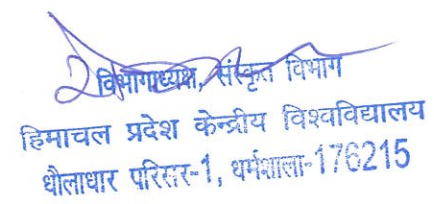 विभागाध्यक्ष, संस्कृत विभाग
हिमाचल प्रदेश केन्द्रीय विश्वविद्यालय
धौलाधार परिसर-1, धर्मशाला-176215